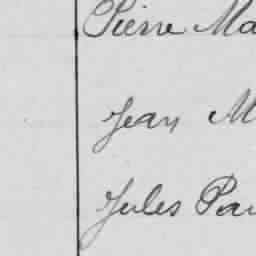 Pierre Ma
Jean M
Jules Pau